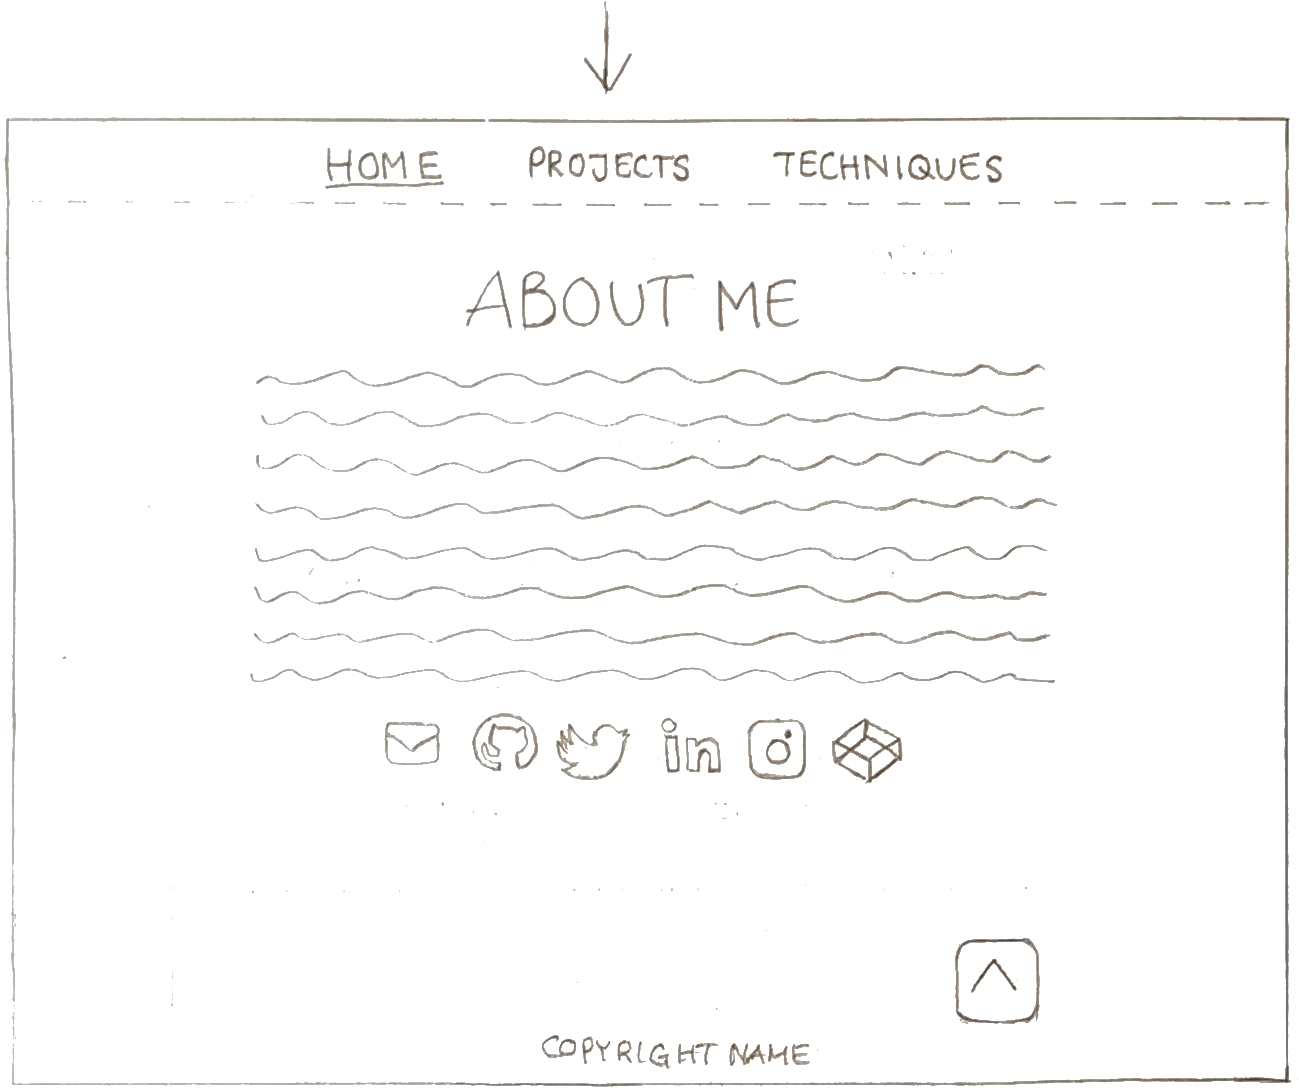 HOME PROJECTS TECHNIQUES
ABOUT ME
in
COPYRIGHT NAME